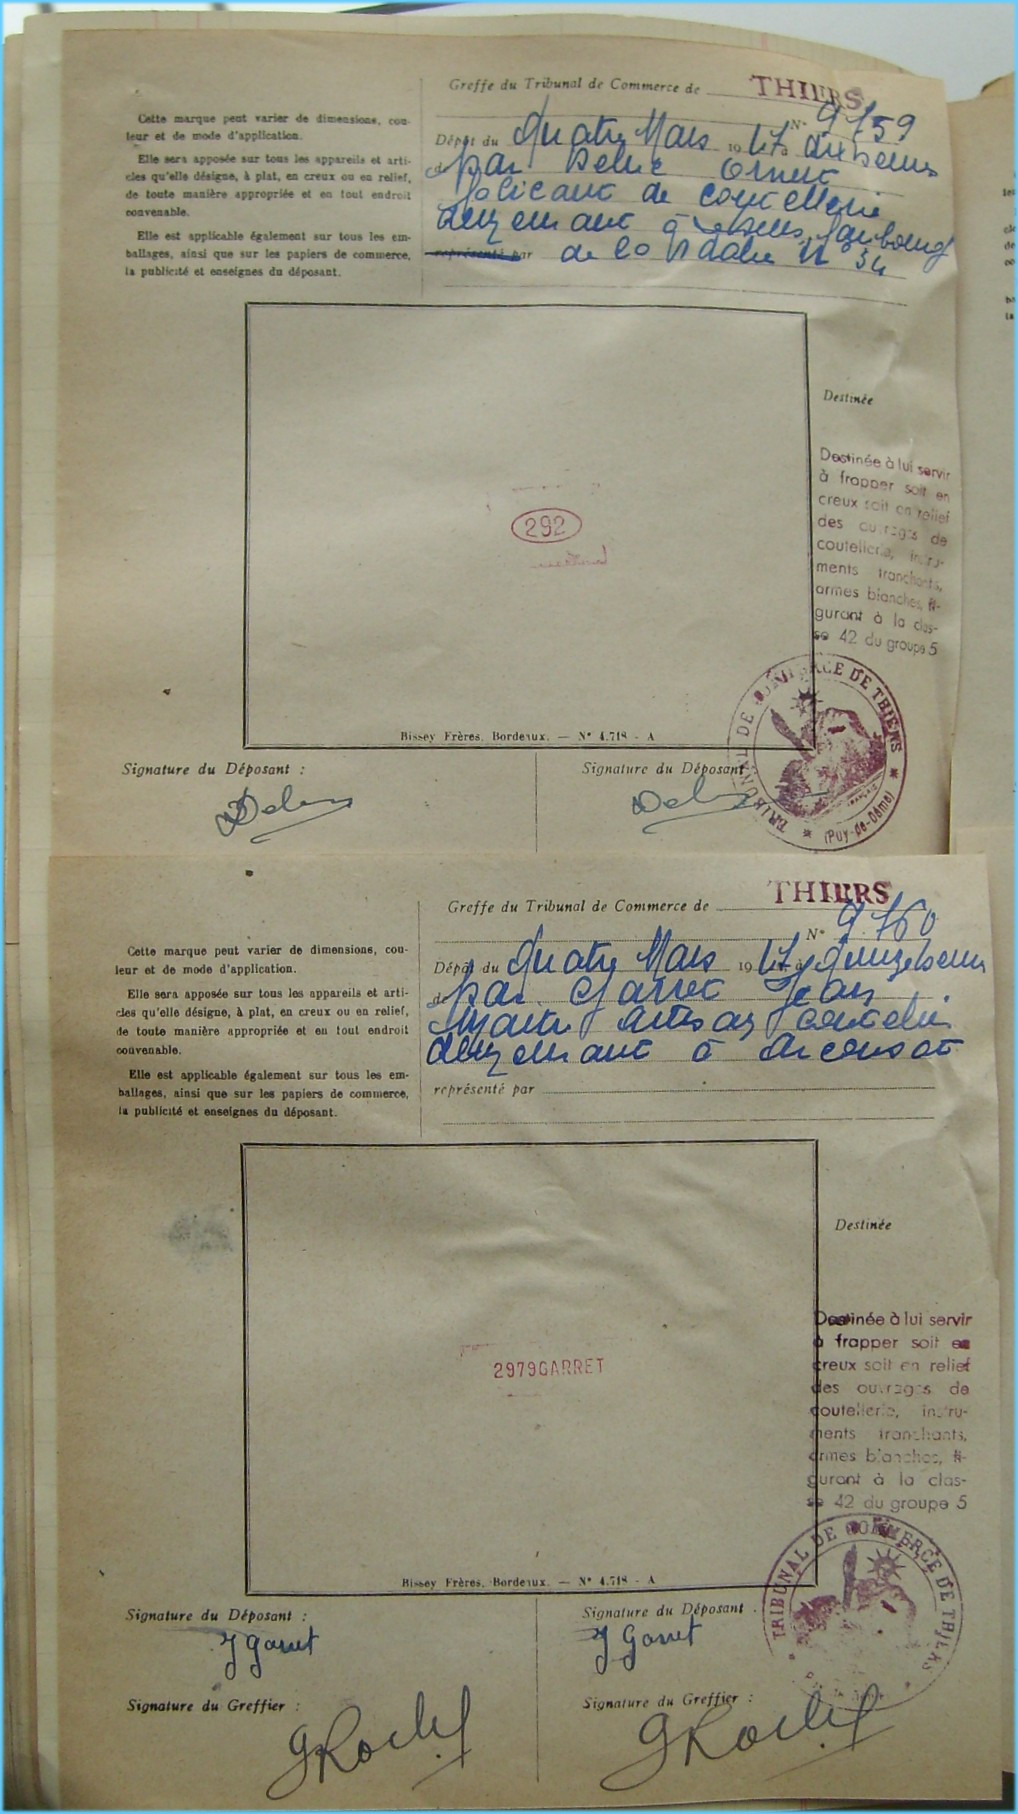 Greffe du Tribunal de Commerce de THIERS
N° 9759
Cette marque peut varier de dimensions, cou-
leur et de mode d'application.
Elle sera apposée sur tous les appareils et arti-
cles qu'elle désigne, à plat, en creux ou en relief,
de toute manière appropriée et en tout endroit
convenable.
Elle est applicable également sur tous les em-
ballages, ainsi que sur les papiers de commerce,
la publicité et enseignes du déposant.
Dépôt du Quatre Mars 1947 à dix heures
par
fabricant de coutellerie
demeurant à faubourg
représenté par de la N° 34
292
Destinée
Destinée à lui servir
à frapper soit en
creux soit en relief
des ouvrages de
coutellerie, instru-
ments tranchants,
armes blanches, fi-
gurant à la clas-
se 42 du groupe 5
Bissey Frères, Bordeaux. — N° 4.718 - A
TRIBUNAL DE COMMERCE DE THIERS
(Puy-de-Dôme)
Signature du Déposant :
Signature du Déposant
Greffe du Tribunal de Commerce de THIERS
N° 9760
Cette marque peut varier de dimensions, cou-
leur et de mode d'application.
Elle sera apposée sur tous les appareils et arti-
cles qu'elle désigne, à plat, en creux ou en relief,
de toute manière appropriée et en tout endroit
convenable.
Elle est applicable également sur tous les em-
ballages, ainsi que sur les papiers de commerce,
la publicité et enseignes du déposant.
Dépôt du Quatre Mars 1947 à quinze heures
par Garret Jean
Maître artisan coutelier
demeurant à Arconsat
représenté par
2979GARRET
Destinée
Destinée à lui servir
à frapper soit en
creux soit en relief
des ouvrages de
coutellerie, instru-
ments tranchants,
armes blanches, fi-
gurant à la clas-
se 42 du groupe 5
Bissey Frères, Bordeaux. — N° 4.718 - A
TRIBUNAL DE COMMERCE DE THIERS
Signature du Déposant :
J Garret
Signature du Déposant
J Garret
Signature du Greffier :
Signature du Greffier :